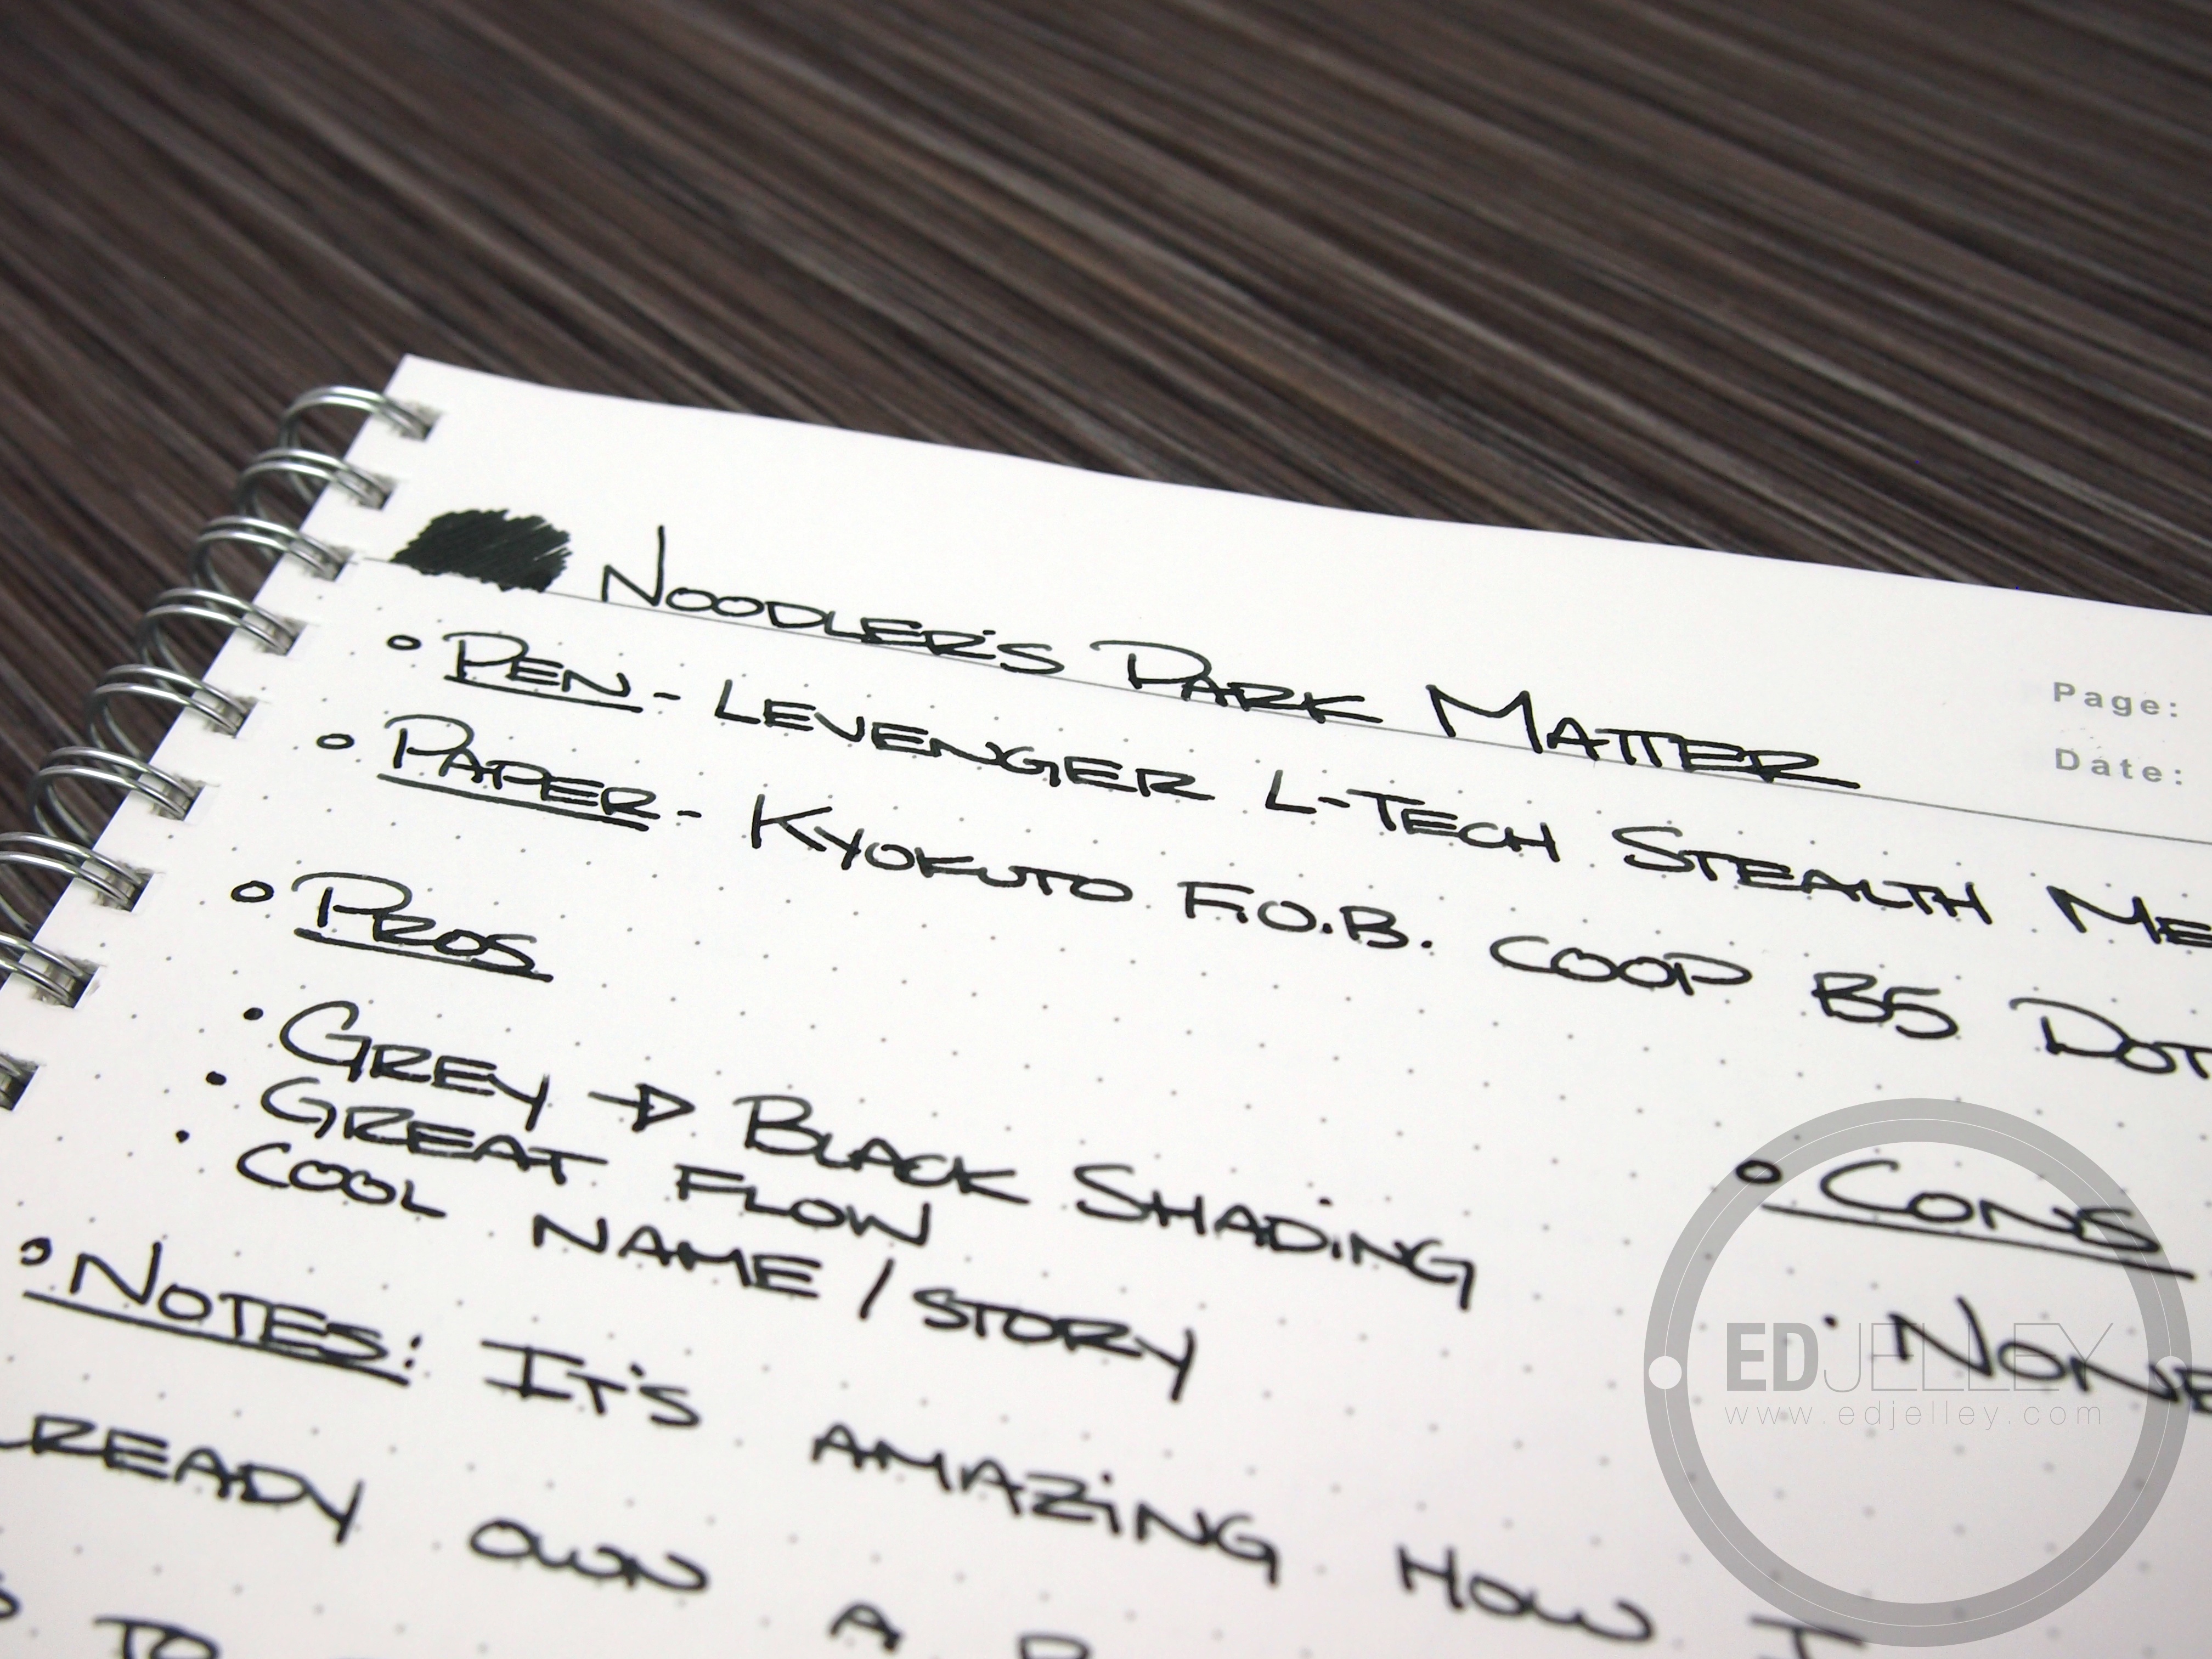 Noodler's Dark Matter
Page:
Date:
Pen - Levenger L-Tech Stealth
Paper - Kyokuto F.O.B. COOP B5 Dot
Pros
Grey → Black Shading
Great Flow
Cool Name / Story
Cons
None
Notes: It's amazing how I
ready own a
to
EDJELLEY
www.edjelley.com